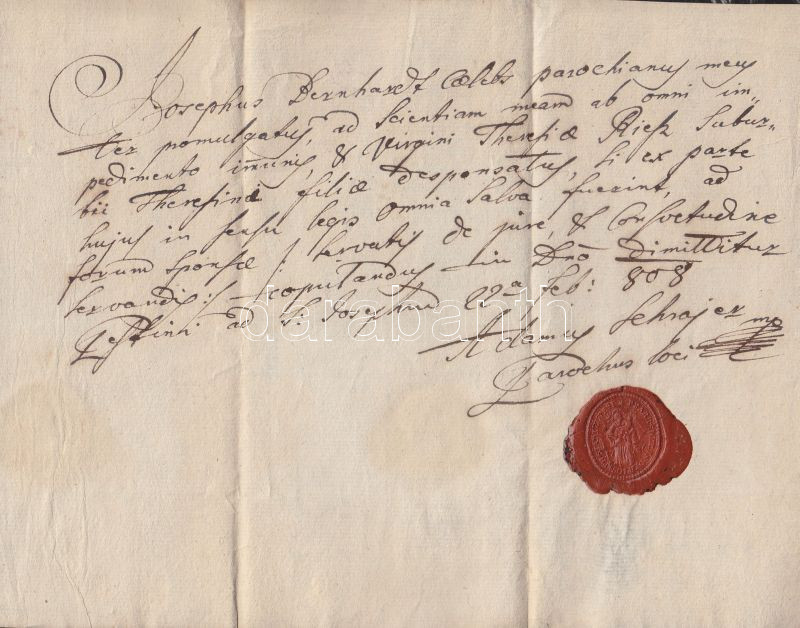 Josephus Bernhardt Cælebs parochianus meus
ter pomulgatus, ad Scientiam meam ab omni im
pedimento immunis, & Virgini Theresiæ Riesz Subur-
bii Theresiani filiæ desponsatus, si ex parte
hujus in sensu legis omnia Salva fuerint, ad
forum sponsæ /: servatis de jure, & Consvetudine
servandis :/ copulandus in Dno dimittitur
Pestini ad S. Josephum 22a Feb: 808
Adamus Schrajer mp
Parochus loci
darabanth